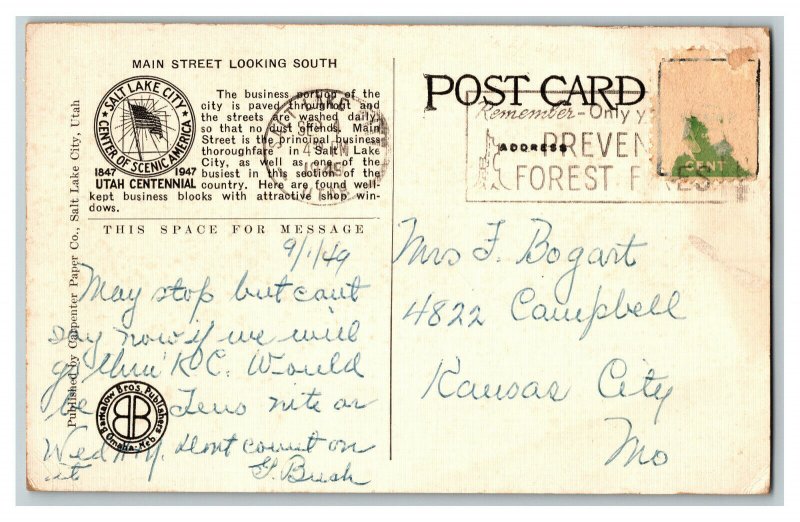 MAIN STREET LOOKING SOUTH
SALT LAKE CITY
CENTER OF SCENIC AMERICA
1847 1947
UTAH CENTENNIAL
The business portion of the
city is paved throughout and
the streets are washed daily,
so that no dust offends. Main
Street is the principal business
thoroughfare in Salt Lake
City, as well as one of the
busiest in this section of the
country. Here are found well-
kept business blooks with attractive shop win-
dows.
THIS SPACE FOR MESSAGE
9/1/49
May stop but cant
say now if we will
go thru K.C. Would
be Tues nite or
Wed A.M. Dont count on
it G. Bush
Published by Carpenter Paper Co., Salt Lake City, Utah
Barkalow Bro's. Publishers
BB
Omaha-Neb
POST CARD
ADDRESS
Remember-Only y
PREVEN
FOREST FIRES
CENT
Mrs F. Bogart
4822 Campbell
Kansas City
Mo